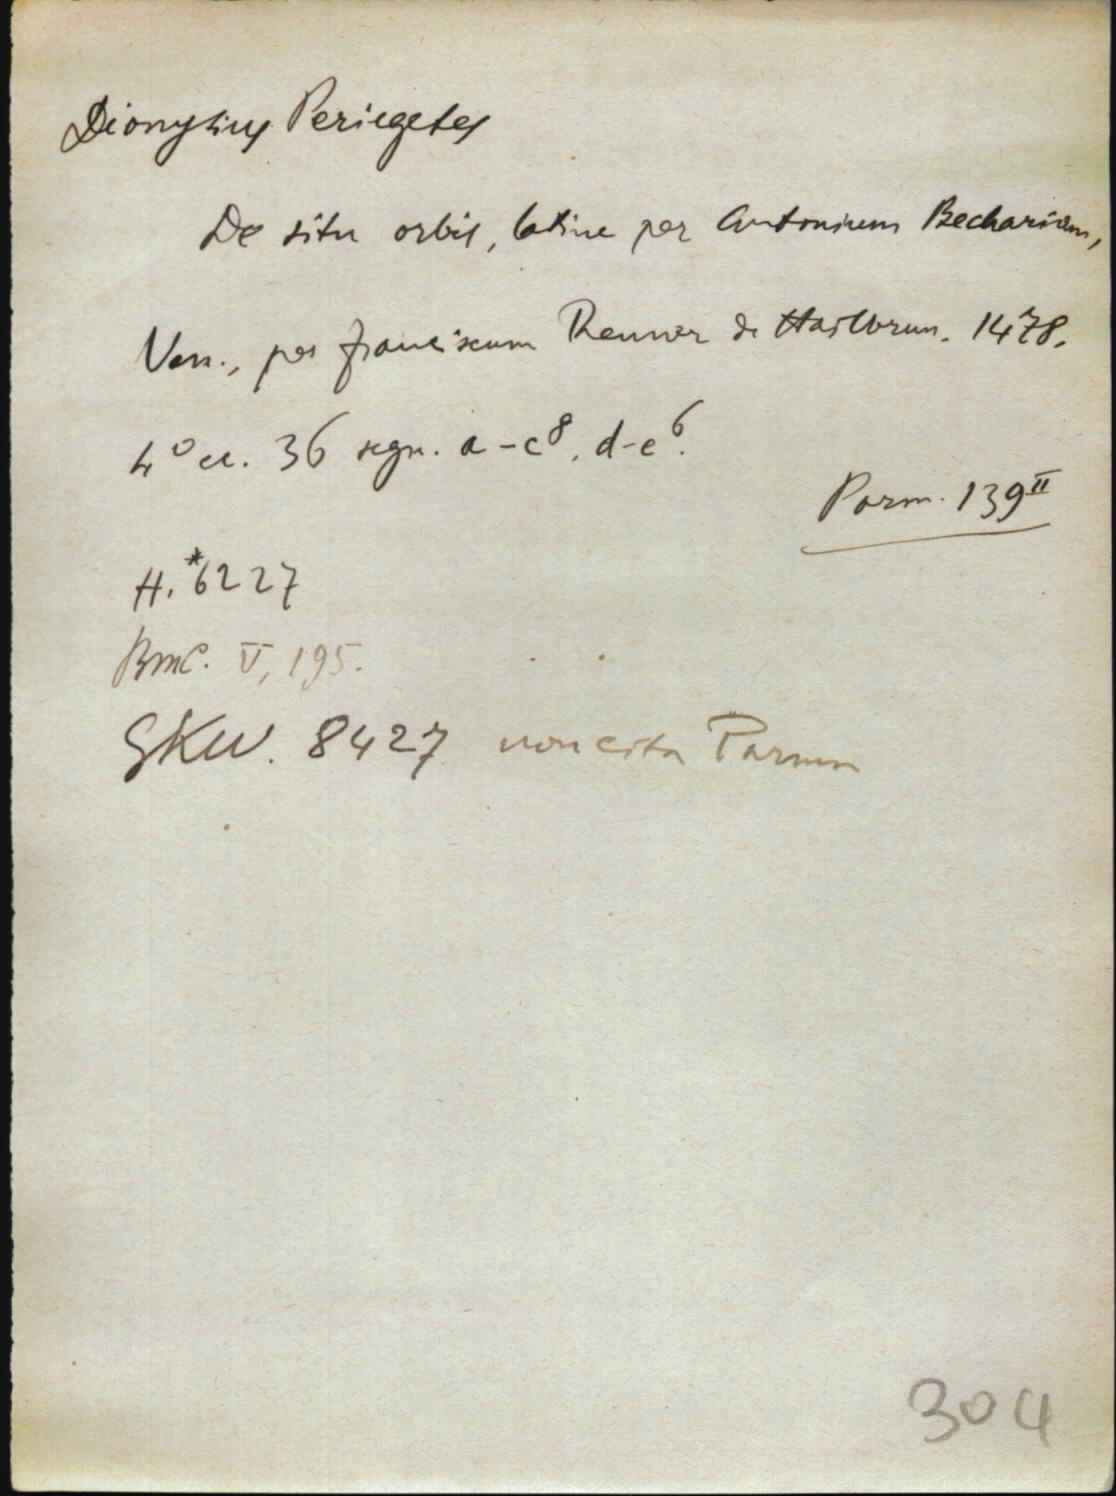 Dionysius Periegetes
De situ orbis, latine per Antonium Becharium,
Ven., per franciscum Renner de Hailbrun. 1478.
4° cc. 36 segn. a-c⁸, d-e⁶.
Parm. 139ᴵᴵ
H.*6227
BMC. V, 195.
GKW. 8427 non cita Parma
304